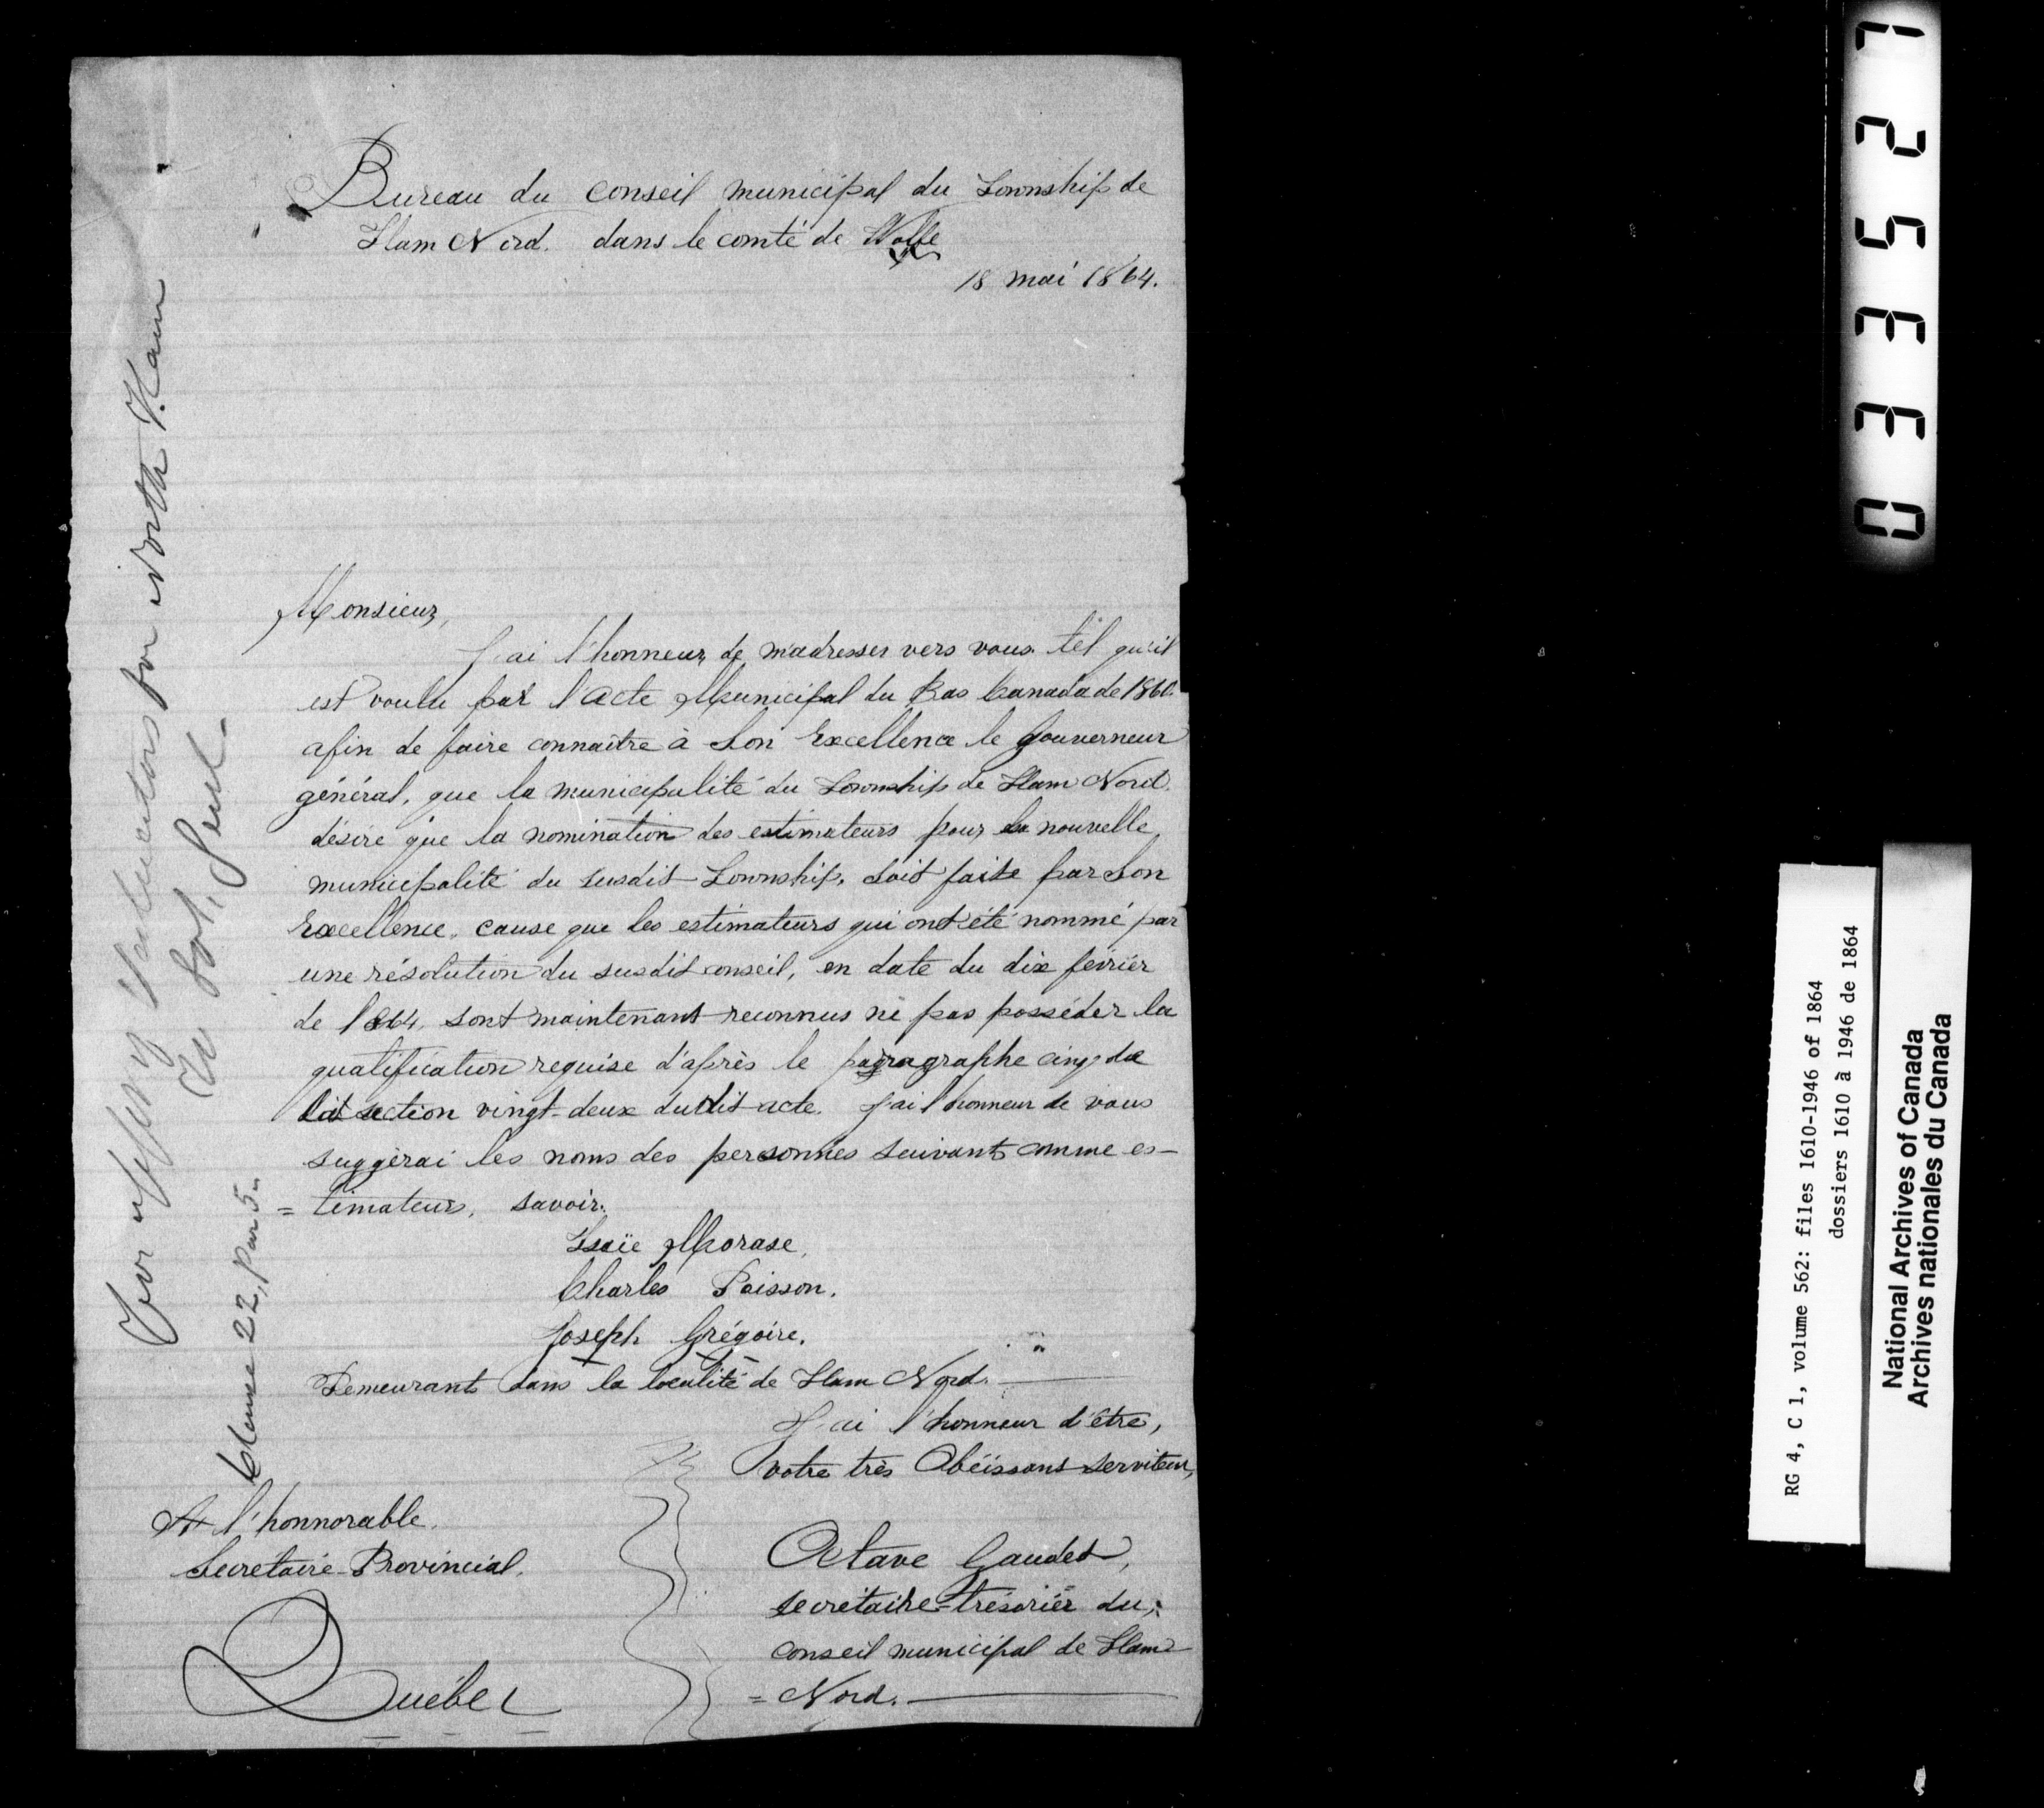 Bureau du conseil municipal du Township de
Ham Nord. dans le comté de Wolfe
18 mai 1864.
Monsieur,
J'ai l'honneur de m'adresser vers vous tel qu'il
est voulu par l'Acte Municipal du Bas Canada de 1860
afin de faire connaître à Son Excellence le Gouverneur
général, que la municipalité du Township de Ham Nord.
désire que la nomination des estimateurs pour la nouvelle
municipalité du susdit Township, soit faite par Son
Excellence, cause que les estimateurs qui ont été nommé par
une résolution du susdit conseil, en date du dix février
de 1864, sont maintenant reconnus ne pas posséder la
qualification requise d'après le paragraphe cinq de
la section vingt-deux du dit acte. J'ai l'honneur de vous
suggérai les noms des personnes suivants comme es-
= timateurs, savoir.
Isaïe Morase,
Charles Poisson.
Joseph Grégoire.
Demeurants dans la localité de Ham Nord.
J'ai l'honneur d'être,
votre très Obéissant serviteur,
Octave Gaudet,
secrétaire-trésorier du
conseil municipal de Ham
= Nord.
A l'honnorable.
Secrétaire Provincial.
Québec
For appg Valuators for North Ham
Clause 22, Par 5.
03352
7
RG 4, C 1, volume 562: files 1610-1946 of 1864
dossiers 1610 à 1946 de 1864
National Archives of Canada
Archives nationales du Canada